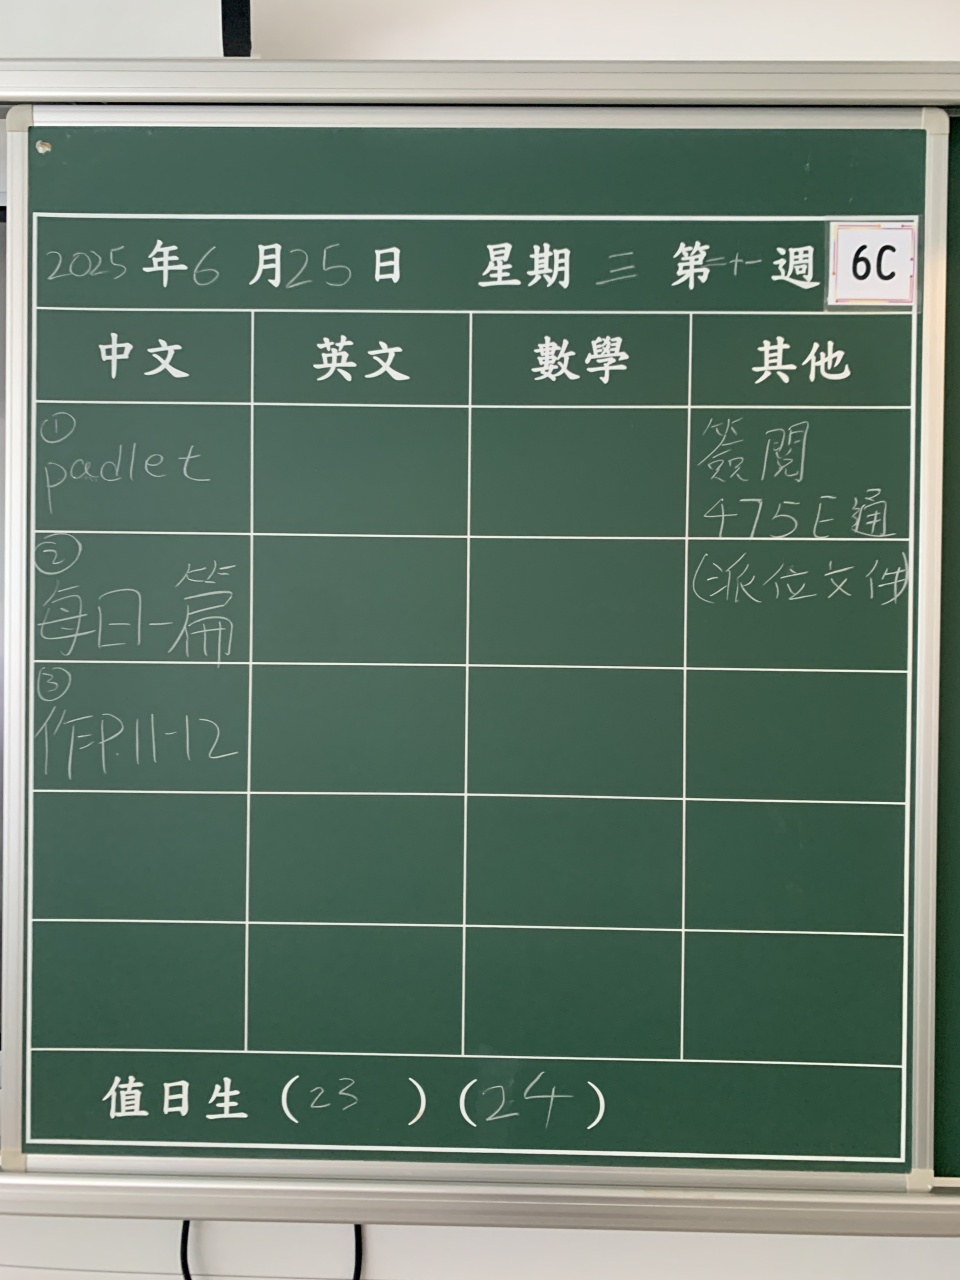 2025年6月25日 星期三 第二十一週 6C
中文 英文 數學 其他
①
padlet
簽閱
475E通
②
每日一篇
(派位文件)
③
作P.11-12
值日生 (23) (24)